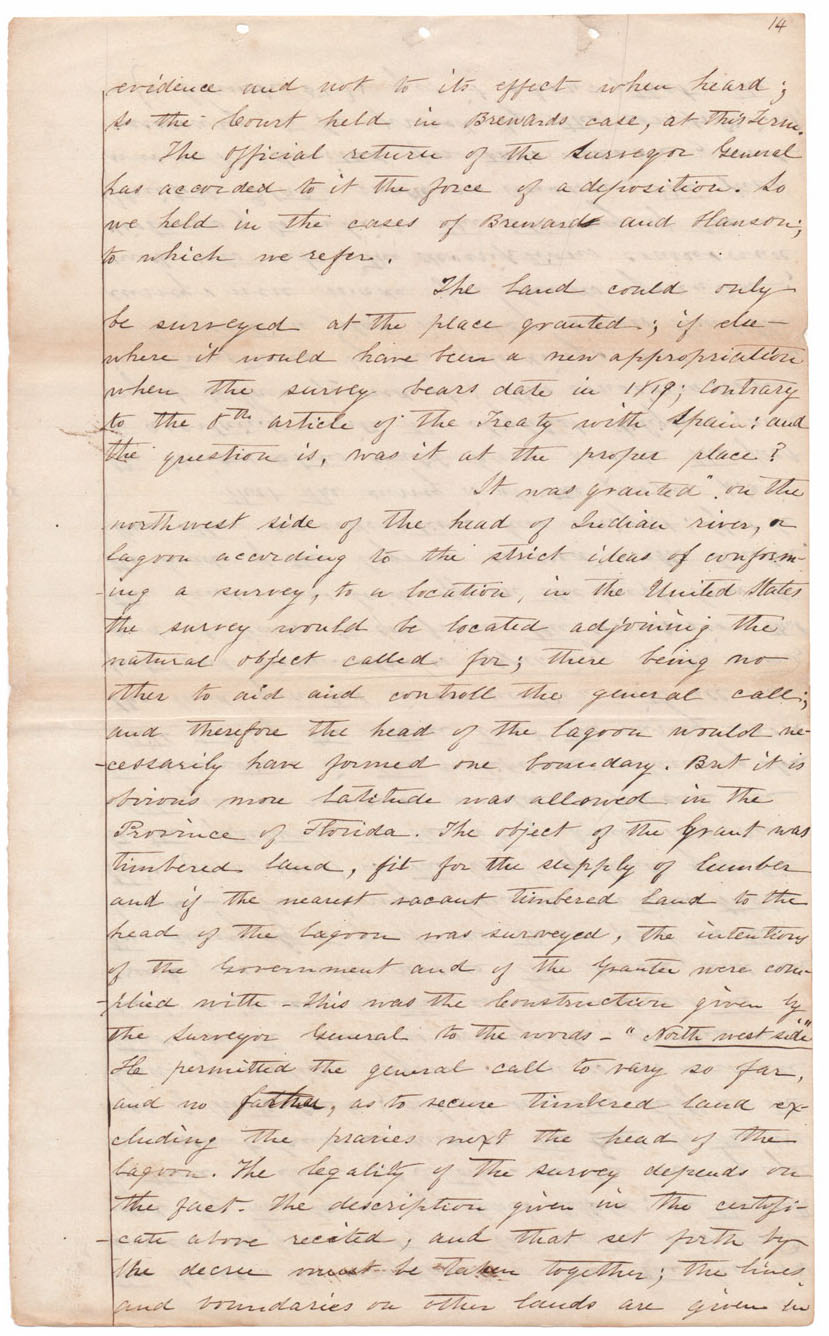 14
evidence and not to its effect when heard;
so the Court held in Brewards case, at this Term.
The Official return of the Surveyor General
has accorded to it the force of a deposition. So
we held in the cases of Breward and Hanson;
to which we refer.
The land could only
be surveyed at the place granted; if else-
where it would have been a new appropriation
when the survey bears date in 1819; contrary
to the 8th article of the Treaty with Spain: and
the question is, was it at the proper place?
It was granted "on the
northwest side of the head of Indian river, or
lagoon according to the strict ideas of conform-
-ing a survey, to a location, in the United States
the survey would be located adjoining the
natural object called for; there being no
other to aid and controll the general call;
and therefore the head of the lagoon would ne-
-cessarily have formed one boundary. But it is
obvious more latitude was allowed in the
Province of Florida. The object of the Grant was
timbered land, fit for the supply of lumber
and if the nearest vacant timbered land to the
head of the lagoon was surveyed, the intentions
of the Government and of the Grantee were com-
-plied with - This was the Construction given by
the Surveyor General to the words - "North west side"
He permitted the general call to vary so far,
and no farther, as to secure timbered land ex-
cluding the praries next the head of the
lagoon. The legality of the survey depends on
the fact. The description given in the certifi-
-cate above recited, and that set forth by
the decree must be taken together; the lines
and boundaries on other lands are given in